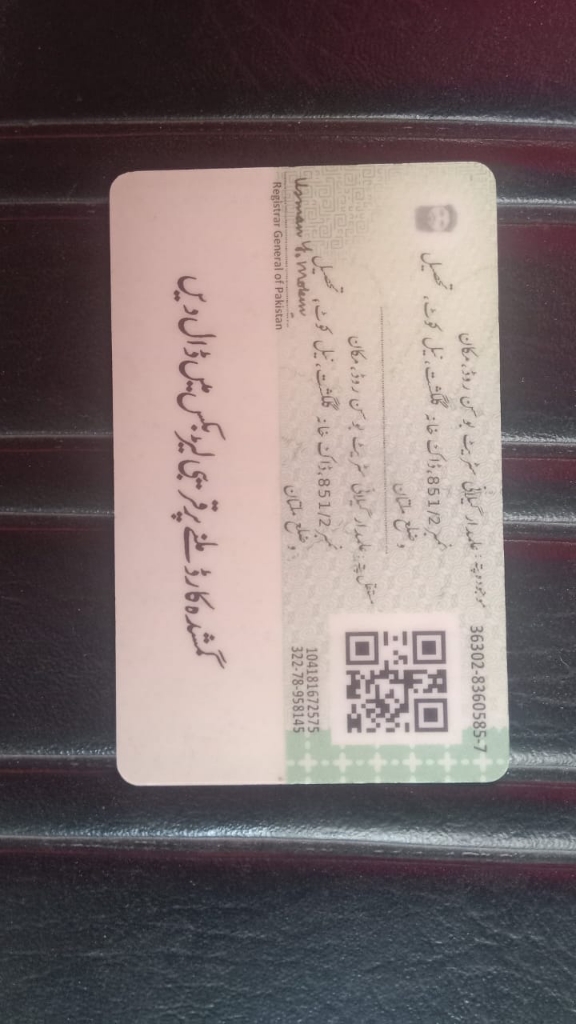 36302-8360585-7
موجودہ پتہ: علمدار گیلانی سٹریٹ بوسن روڈ، مکان
نمبر 851/2، ڈاک خانہ گلگشت، نیل کوٹ، تحصیل
و ضلع ملتان
مستقل پتہ: علمدار گیلانی سٹریٹ بوسن روڈ، مکان
نمبر 851/2، ڈاک خانہ گلگشت، نیل کوٹ، تحصیل
و ضلع ملتان
104181672575
322-78-958145
Usman Y. Mobin
Registrar General of Pakistan
گمشدہ کارڈ ملنے پر قریبی لیٹر بکس میں ڈال دیں